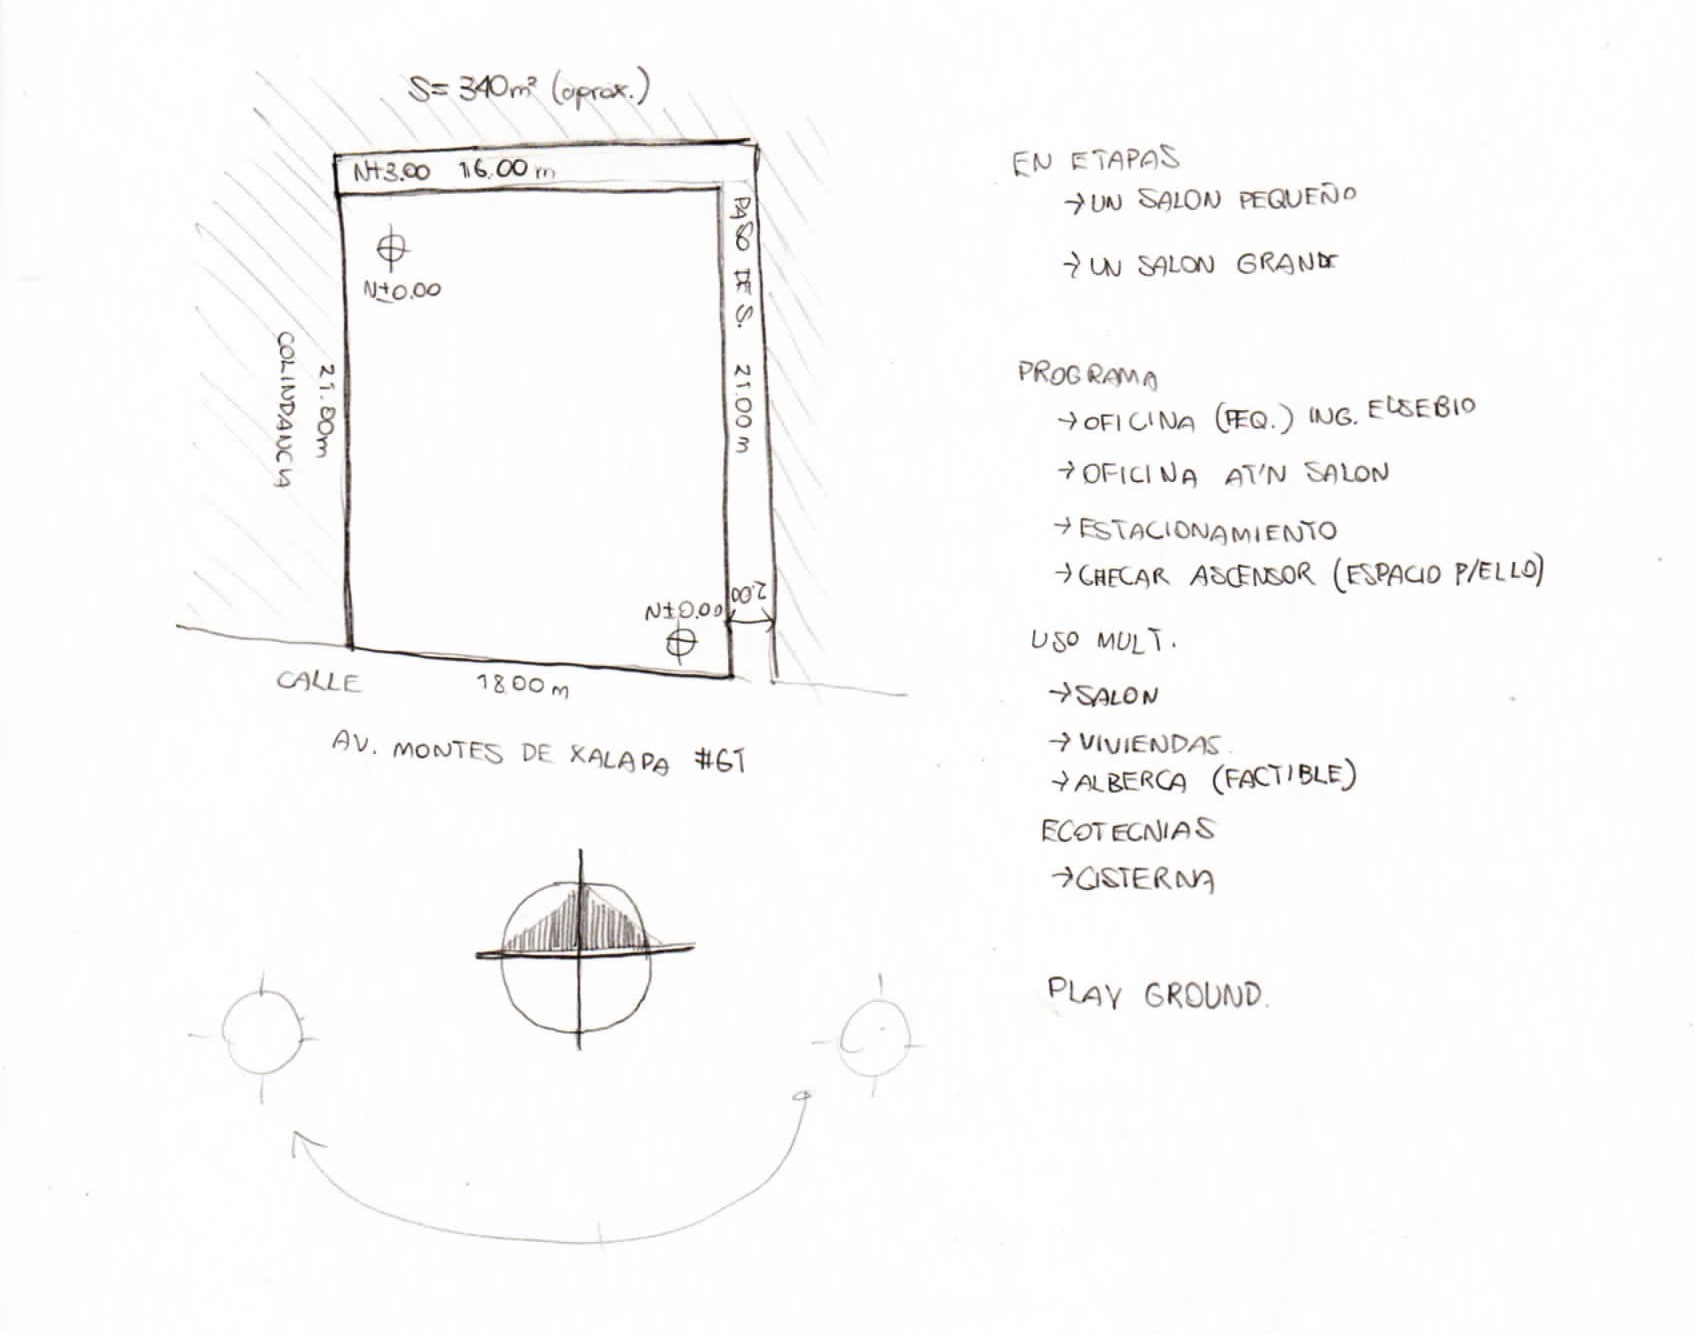 S= 340m² (aprox.)
N+3.00 16.00 m
PASO DE S. 21.00 m
N±0.00
21.00m
COLINDANCIA
2.00
N±0.00
CALLE
18.00 m
AV. MONTES DE XALAPA #61
EN ETAPAS
→ UN SALON PEQUEÑO
→ UN SALON GRANDE
PROGRAMA
→ OFICINA (PEQ.) ING. EUSEBIO
→ OFICINA AT'N SALON
→ ESTACIONAMIENTO
→ CHECAR ASCENSOR (ESPACIO P/ELLO)
USO MULT.
→ SALON
→ VIVIENDAS.
→ ALBERCA (FACTIBLE)
ECOTECNIAS
→ CISTERNA
PLAY GROUND.